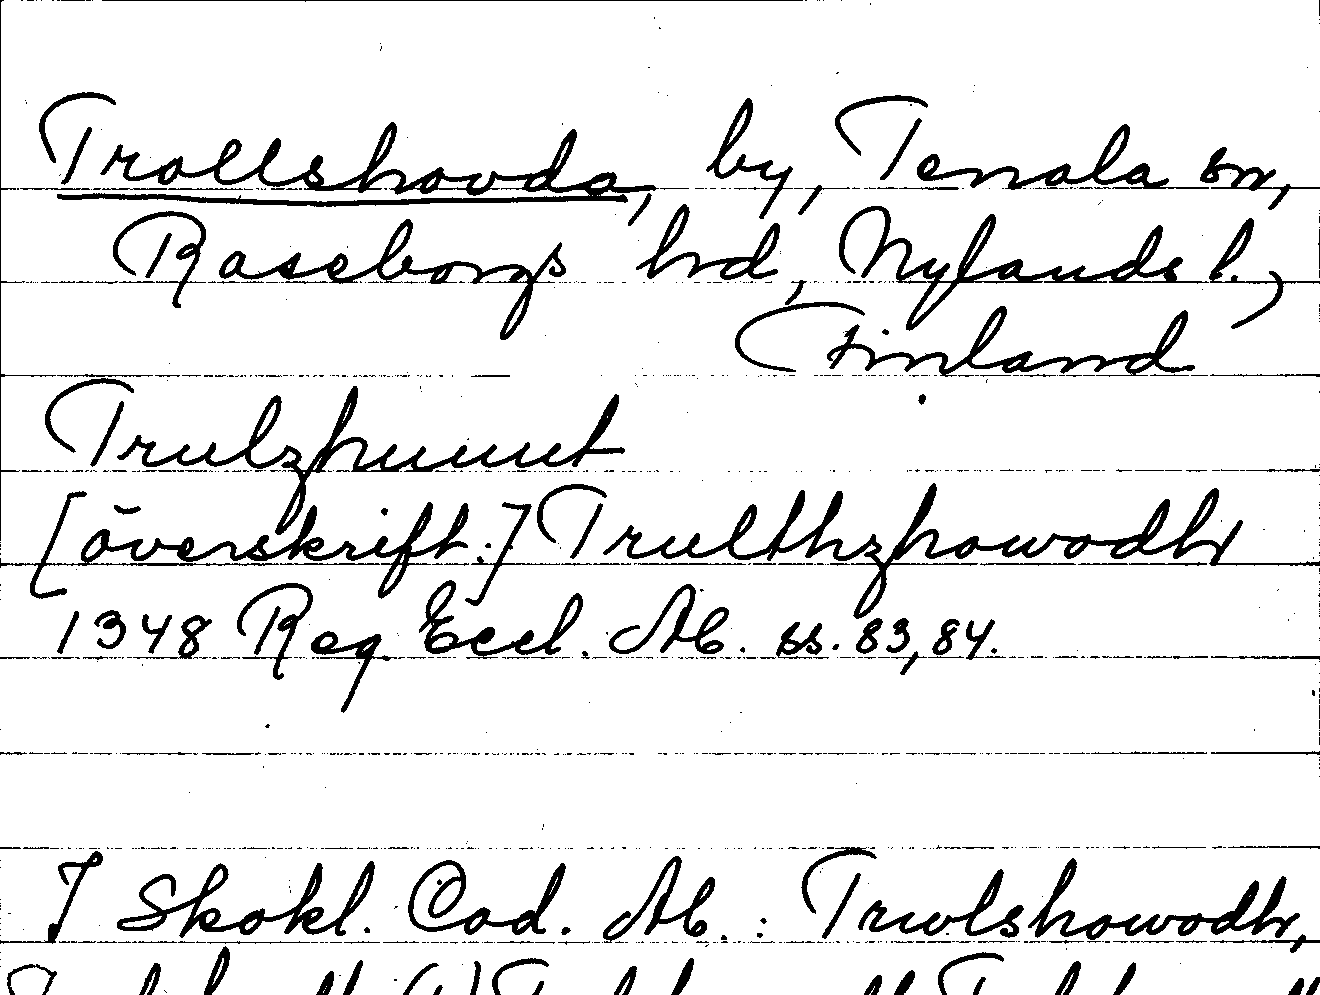 Trollshovda, by, Tenala sn,
Raseborgs hrd, Nylands l.,
Finland
Trulzhuuut
[överskrift:] Trulthzhowodhr
1348 Reg Eccl. Ab. ss. 83, 84.
I Skokl. Cod. Ab.: Trwlshowodhr,